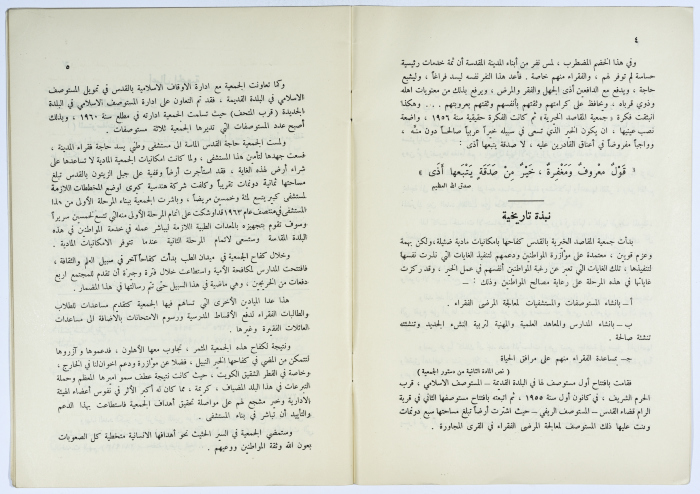 ٤
وفي هذا الخضم المضطرب ، لمس نفر من أبناء المدينة المقدسة أن ثمة خدمات رئيسية
حساسة لم توفر لهم ، والفقراء منهم خاصة . فأعد هذا النفر نفسه ليسد فراغاً ، وليشبع
حاجة ، ويندفع مع الدافعين أذى الجهل والفقر والمرض ، ويرفع بذلك من معنويات اهله
وذوي قرباه ، ويحافظ على كرامتهم وثقتهم بأنفسهم وثقتهم بعروبتهم . . . وهكذا
انبثقت فكرة « جمعية المقاصد الخيرية» ثم كانت الفكرة حقيقية سنة ١٩٥٦ ، واضعة
نصب عينيها ، ان يكون الخير الذي تسعى في سبيله خيراً عربياً صالحاً دون منّه ،
وواجباً مفروضاً في أعناق القادرين عليه ، لا صدقة يتبعها أذى :
« قَوْلٌ مَعروفٌ وَمَغفِرةٌ ، خَيْرٌ مِنْ صَدَقَةٍ يَتْبَعها أَذَى »
صدق الله العظيم
نبذة تاريخية
بدأت جمعية المقاصد الخيرية بالقدس كفاحها بامكانيات مادية ضئيلة،ولكن بهمة
وعزم قويين ، معتمدة على مؤازرة المواطنين ودعمهم لتنفيذ الغايات التي نذرت نفسها
لتنفيذها ، تلك الغايات التي تعبر عن رغبة المواطنين أنفسهم في عمل الخير ، وقد ركزت
غاياتها في هذه المرحلة على رعاية مصالح المواطنين وذلك : ــ
أ ــ بانشاء المستوصفات والمستشفيات لمعالجة المرضى الفقراء .
ب ــ بانشاء المدارس والمعاهد العلمية والمهنية لتربية النشء الجديد وتنشئته
تنشئة صالحة .
جـ ــ لمساعدة الفقراء منهم على مرافق الحياة
( نص المادة الثانية من دستور الجمعية )
فقامت بافتتاح أول مستوصف لها في البلدة القديمة ــ المستوصف الاسلامي ، قرب
الحرم الشريف ، في كانون أول سنة ١٩٥٥ ، ثم اتبعته بافتتاح مستوصفها الثاني في قرية
الرام قضاء القدس ــ المستوصف الريفي ــ حيث اشترت أرضاً تبلغ مساحتها سبع دونمات
وبنت عليها ذلك المستوصف لمعالجة المرضى الفقراء في القرى المجاورة .
٥
وكما تعاونت الجمعية مع ادارة الأوقاف الاسلامية بالقدس في تمويل المستوصف
الاسلامي في البلدة القديمة ، فقد تم التعاون على ادارة المستوصف الاسلامي في البلدة
الجديدة ( قرب المتحف ) حيث تسلمت الجمعية ادارته في مطلع سنة ١٩٦٠ ، وبذلك
أصبح عدد المستوصفات التي تديرها الجمعية ثلاثة مستوصفات .
ولمست الجمعية حاجة القدس الماسة الى مستشفى وطني يسد حاجة فقراء المدينة ،
فسعت جهدها لتأمين هذا المستشفى ، ولما كانت امكانيات الجمعية المادية لا تساعدها على
شراء أرض لهذه الغاية ، فقد استأجرت أرضاً وقفية على جبل الزيتون بالقدس تبلغ
مساحتها ثمانية دونمات تقريباً وكلفت شركة هندسية كبرى لوضع المخططات اللازمة
لمستشفى كبير يتسع لمئة وخمسين مريضاً ، وباشرت الجمعية ببناء المرحلة الأولى من هذا
المستشفى في منتصف عام ١٩٦٣ وقد اوشكت على اتمام المرحلة الأولى منه التي تتسع لخمسين سريراً
وسوف تقوم بتجهيزه بالمعدات الطبية اللازمة ليباشر عمله في خدمة المواطنين في هذه
البلدة المقدسة وستسعى لاتمام المرحلة الثانية عندما تتوفر الامكانيات المادية .
وخلال كفاح الجمعية في ميدان الطب بدأت كفاحاً آخر في سبيل العلم والثقافة ،
فافتتحت المدارس لمكافحة الأمية واستطاعت خلال فترة وجيزة أن تقدم للمجتمع اربع
دفعات من الخريجين ، وهي ماضية في هذا السبيل حتى تتم رسالتها في هذا المضمار .
هذا عدا الميادين الأخرى التي تساهم فيها الجمعية كتقديم مساعدات للطلاب
والطالبات الفقراء لدفع الأقساط المدرسية ورسوم الامتحانات بالاضافة الى مساعدة
العائلات الفقيرة وغيرها .
ونتيجة لكفاح هذه الجمعية المثمر ، تجاوب معها الأهلون ، فدعموها وآزروها
لتتمكن من المضي في كفاحها الخير النبيل ، فضلا عن مؤازرة ودعم اخواننا في الخارج ،
وخاصة في القطر الشقيق الكويت ، حيث كانت نتيجة عطف سمو اميرها المعظم وحملة
التبرعات في هذا البلد المضياف ، كريمة ، مما كان له أكبر الأثر في نفوس أعضاء الهيئة
الادارية وخير مشجع لهم على مواصلة تحقيق أهداف الجمعية فاستطاعت بهذا الدعم
والتأييد أن تباشر في بناء المستشفى .
وستمضي الجمعية في السير الحثيث نحو أهدافها الانسانية متخطية كل الصعوبات
بعون الله وثقة المواطنين ووعيهم .